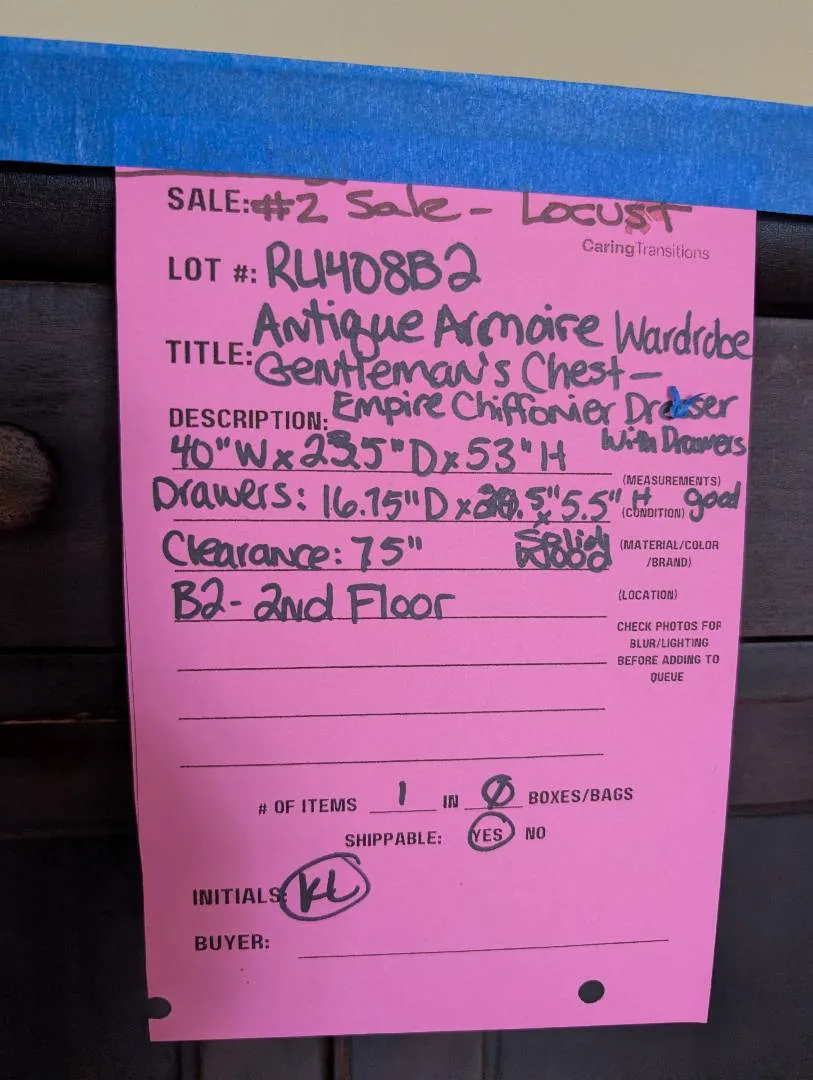 SALE: #2 Sale - Locust
CaringTransitions
LOT #: RU408B2
TITLE: Antique Armoire Wardrobe
Gentleman's Chest -
DESCRIPTION: Empire Chiffonier Dresser
With Drawers
40" W x 23.5" D x 53" H
(MEASUREMENTS)
Drawers: 16.75" D x 5.5" H
(CONDITION) good
Clearance: 75" Solid Wood
(MATERIAL/COLOR
/BRAND)
B2 - 2nd Floor
(LOCATION)
CHECK PHOTOS FOR
BLUR/LIGHTING
BEFORE ADDING TO
QUEUE
# OF ITEMS 1 IN Ø BOXES/BAGS
SHIPPABLE: YES NO
INITIALS: KL
BUYER: